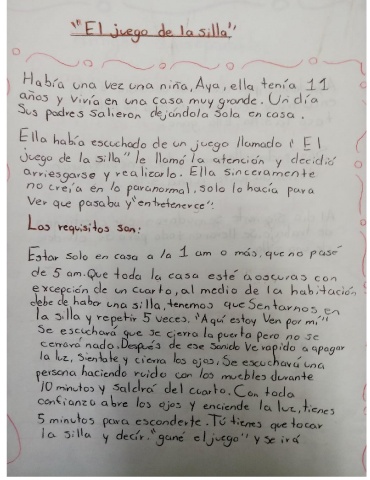 "El juego de la silla"
Había una vez una niña, Aya, ella tenía 11
años y vivía en una casa muy grande. Un día
sus padres salieron dejándola sola en casa.
Ella había escuchado de un juego llamado "El
juego de la silla" le llamó la atención y decidió
arriesgarse y realizarlo. Ella sinceramente
no creía en lo paranormal, solo lo hacía para
ver que pasaba y "entretenerce".
Los requisitos son:
Estar solo en casa a la 1 am o más, que no pase
de 5 am. Que toda la casa esté a oscuras con
excepción de un cuarto, al medio de la habitación
debe de haber una silla, tenemos que sentarnos en
la silla y repetir 5 veces. "Aquí estoy Ven por mí"
Se escuchará que se cierra la puerta pero no se
cerrará nada. Después de ese sonido Ve rapido a apagar
la luz, Sientate y cierra los ojos, Se escuchará una
persona haciendo ruido con los muebles durante
10 minutos y saldrá del cuarto. Con toda
confianza abre los ojos y enciende la luz, tienes
5 minutos para esconderte. Tú tienes que tocar
la silla y decir. "gané el juego" y se irá